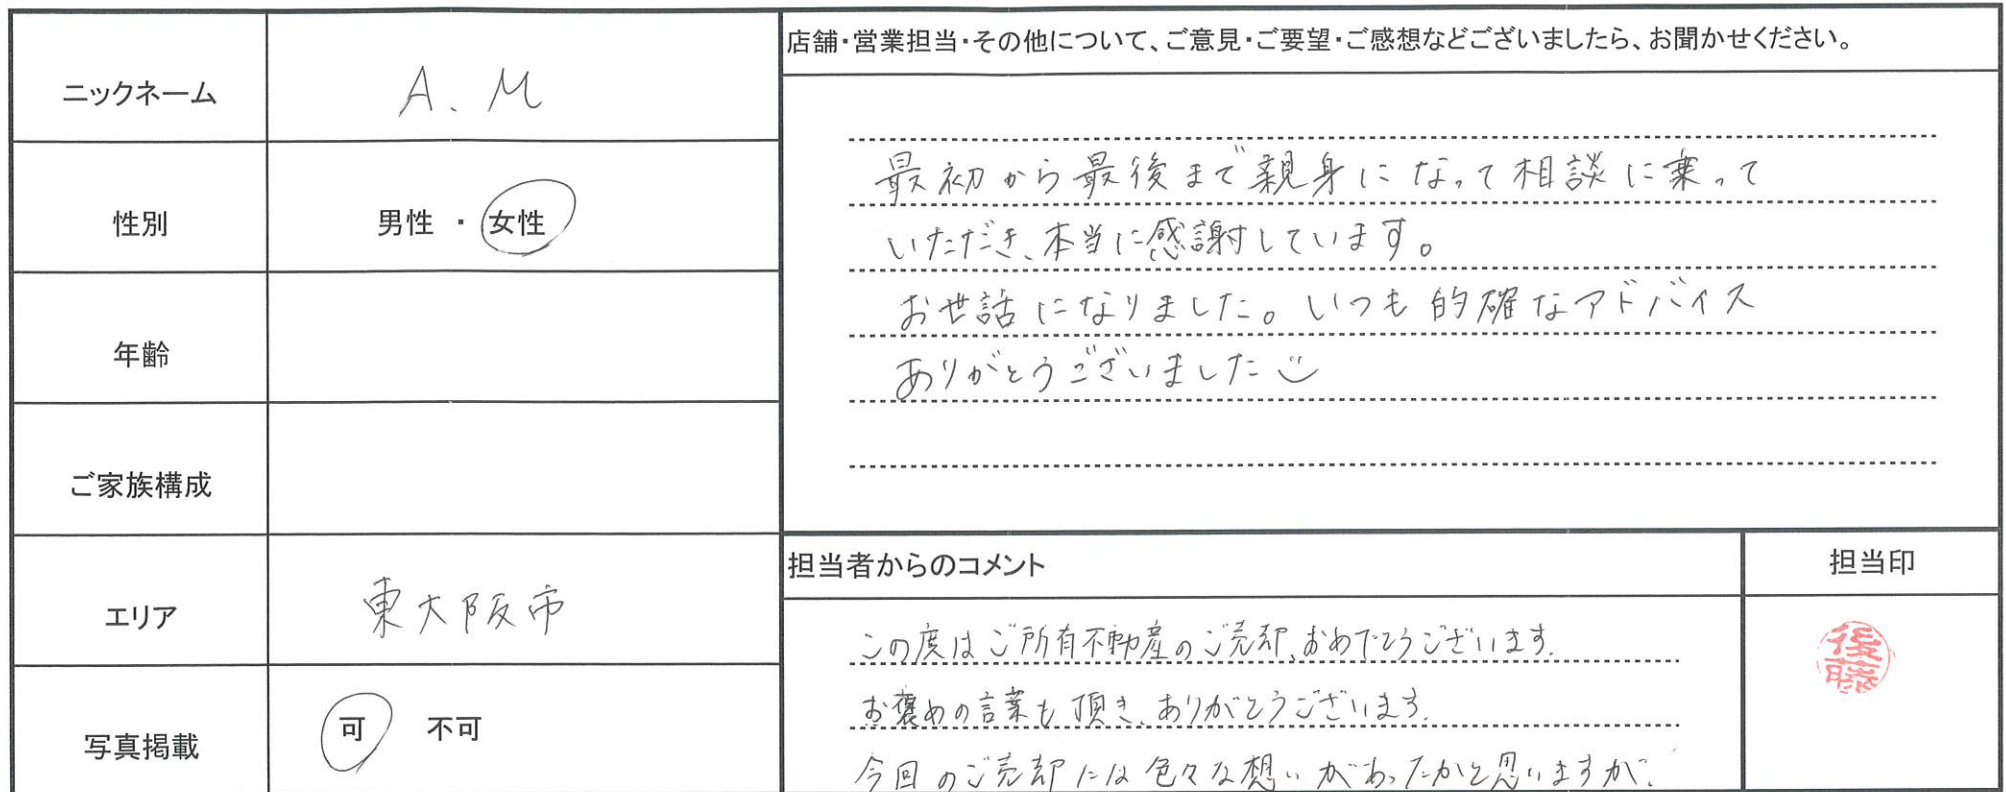 ニックネーム
A.M
性別
男性・女性
年齢
ご家族構成
エリア
東大阪市
写真掲載
可 不可
店舗・営業担当・その他について、ご意見・ご要望・ご感想などございましたら、お聞かせください。
最初から最後まで親身になって相談に乗って
いただき、本当に感謝しています。
お世話になりました。いつも的確なアドバイス
ありがとうございました
担当者からのコメント
この度はご所有不動産のご売却、おめでとうございます。
お褒めの言葉も頂き、ありがとうございます。
今回のご売却には色々な想いがあったかと思いますが、
担当印
後藤